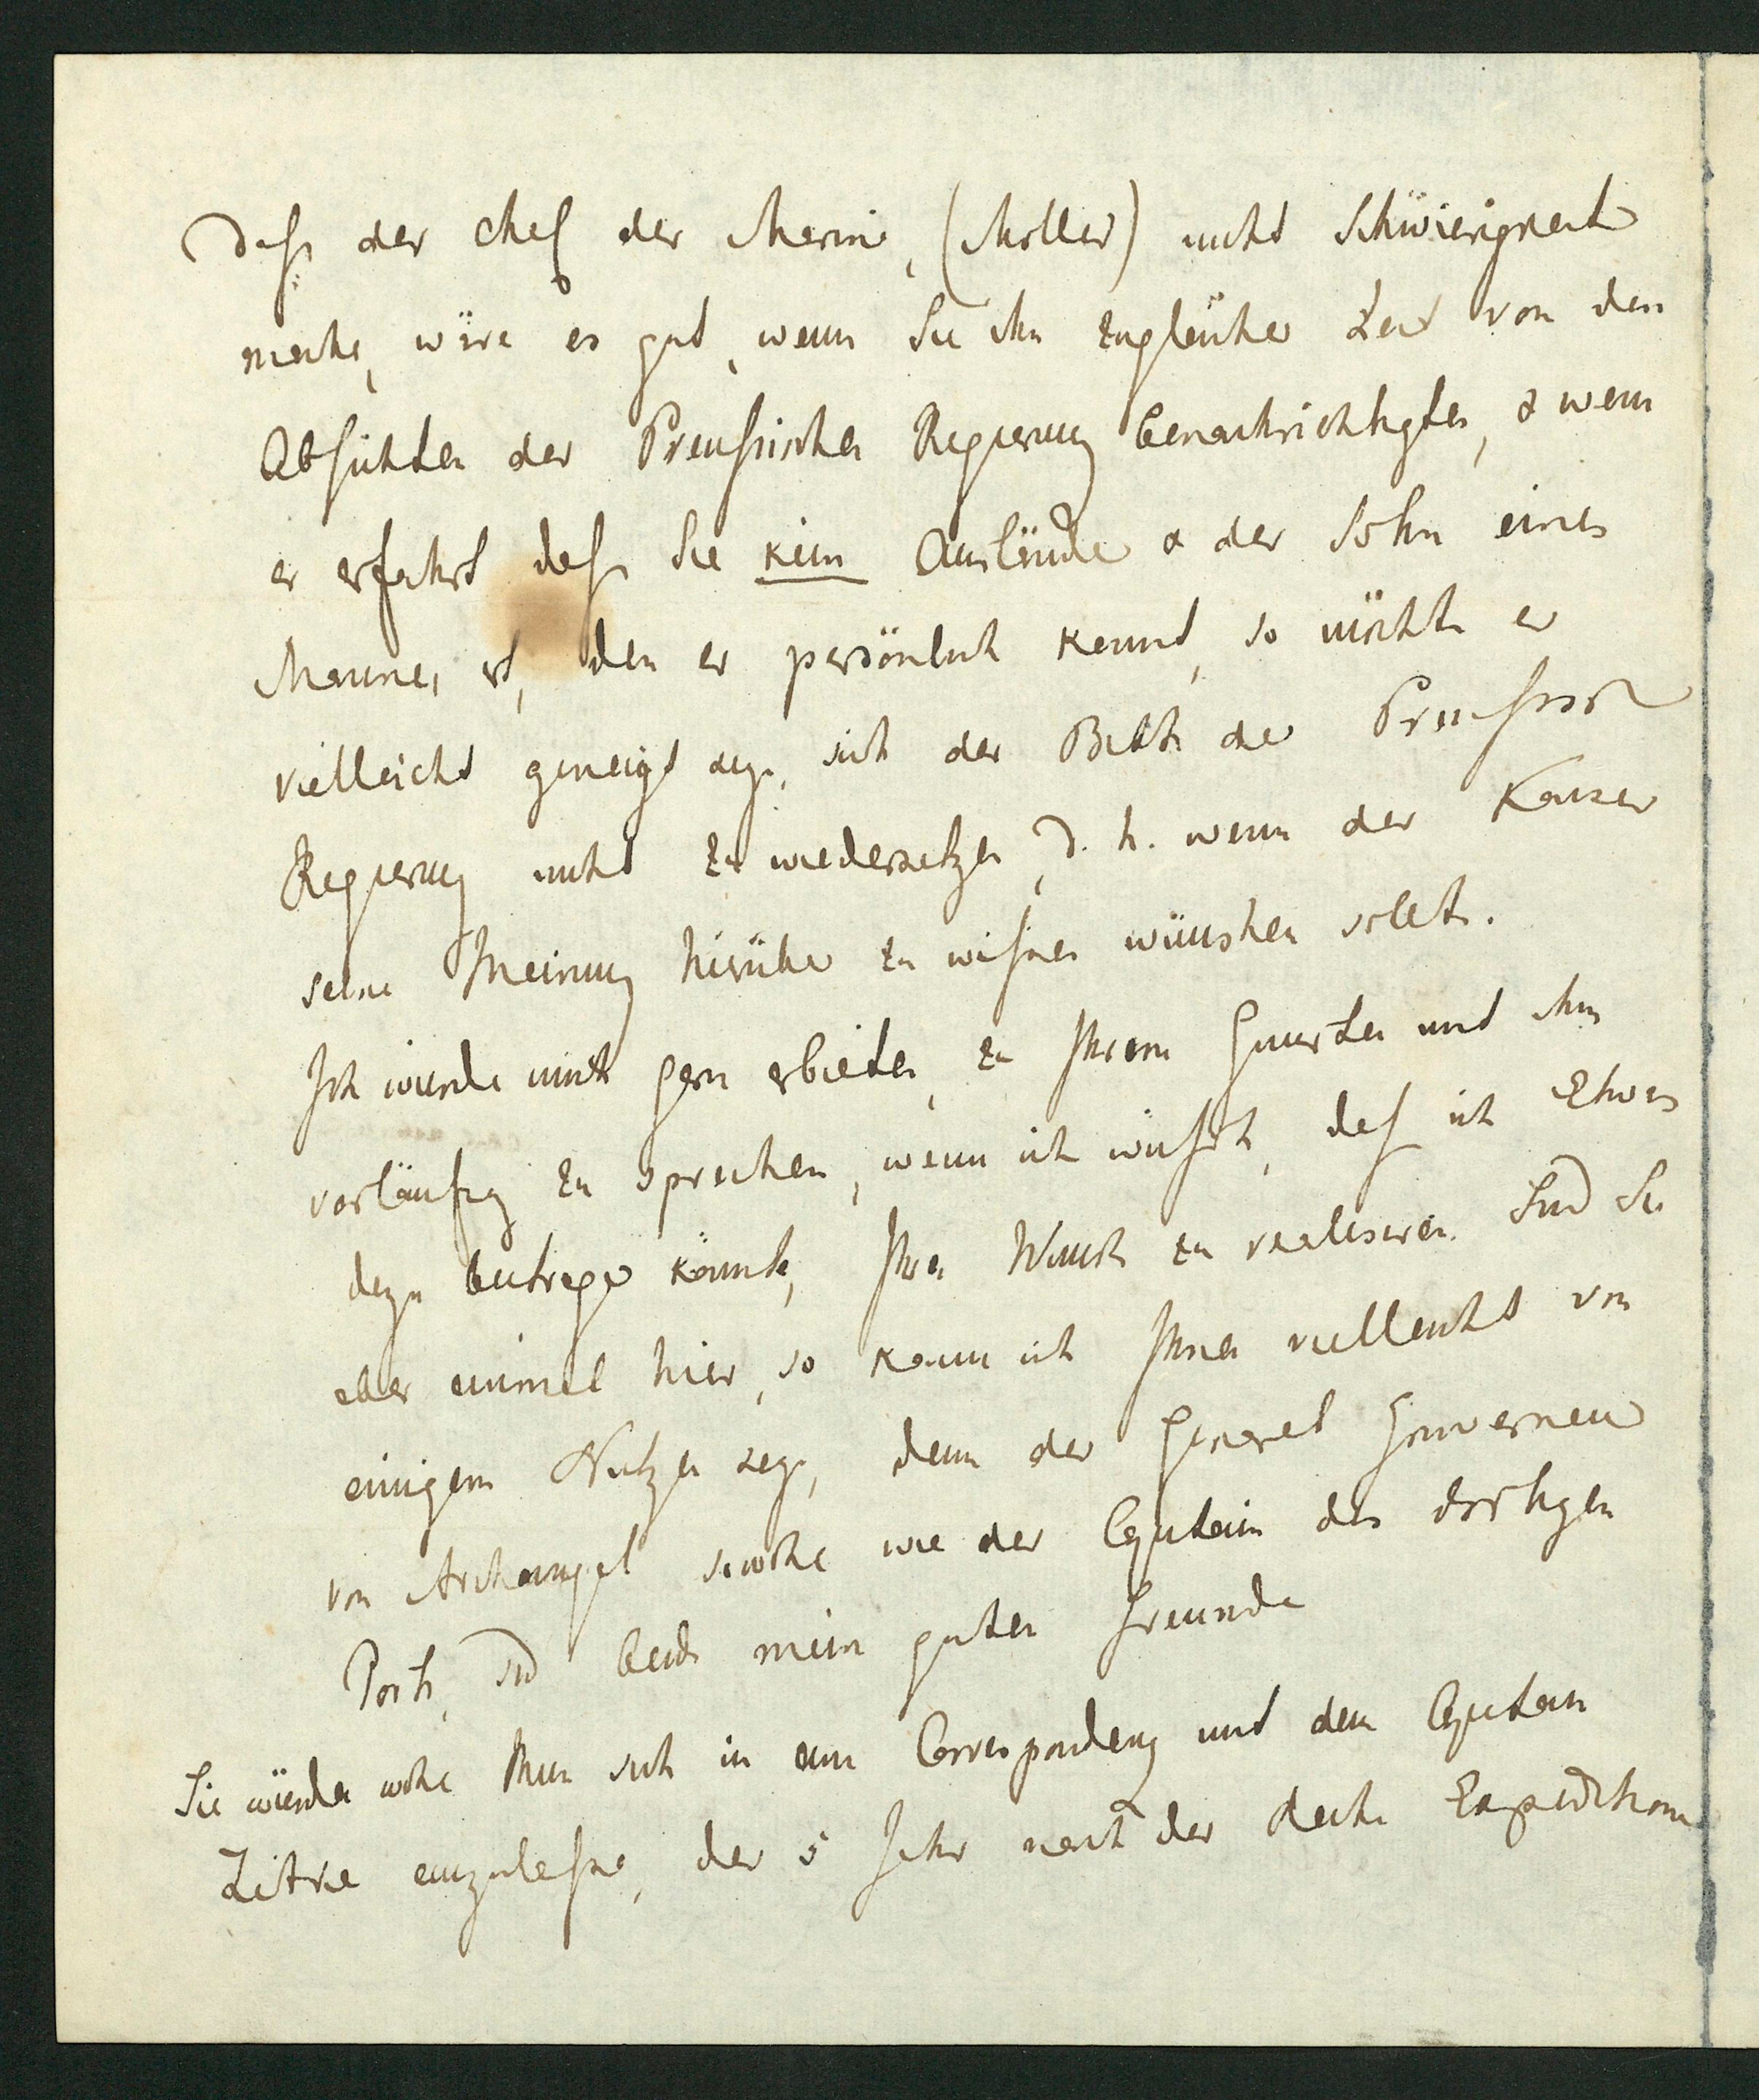 Daß der Chef der Marine, (Moller) nicht Schwierigkeit
mache, wäre es gut, wenn Sie ihn zugleicher Zeit von den
Absichten der Preußischen Regierung benachrichtigten, & wenn
er erfahrt daß Sie kein Ausländer & der Sohn eines
Mannes ist, den er persönlich kennt, so möchte er
vielleicht geneigt seyn, sich der Bitte der Preußisch
Regierung nicht zu wiedersetzen, d. h. wenn der Kaiser
seine Meinung hierüber zu wißen wünschen sollte.
Ich würde mich gern erbieten, zu Ihrem Gunsten mit ihm
vorläufig zu sprechen, wenn ich wüßte, daß ich Etwas
dazu beitragen könnte, Ihren Wunsch zu realisiren. Sind Sie
aber einmal hier, so kann ich Ihnen vielleicht von
einigem Nutzen seyn, denn der General Gouverneur
von Archangel sowohl wie der Capitain des dortigen
Ports, sind beide meine guten Freunde
Sie würden wohl thun sich in eine Correspondenz mit dem Capitain
Litke einzulaßen, der 5 Jahr nach der Expedition